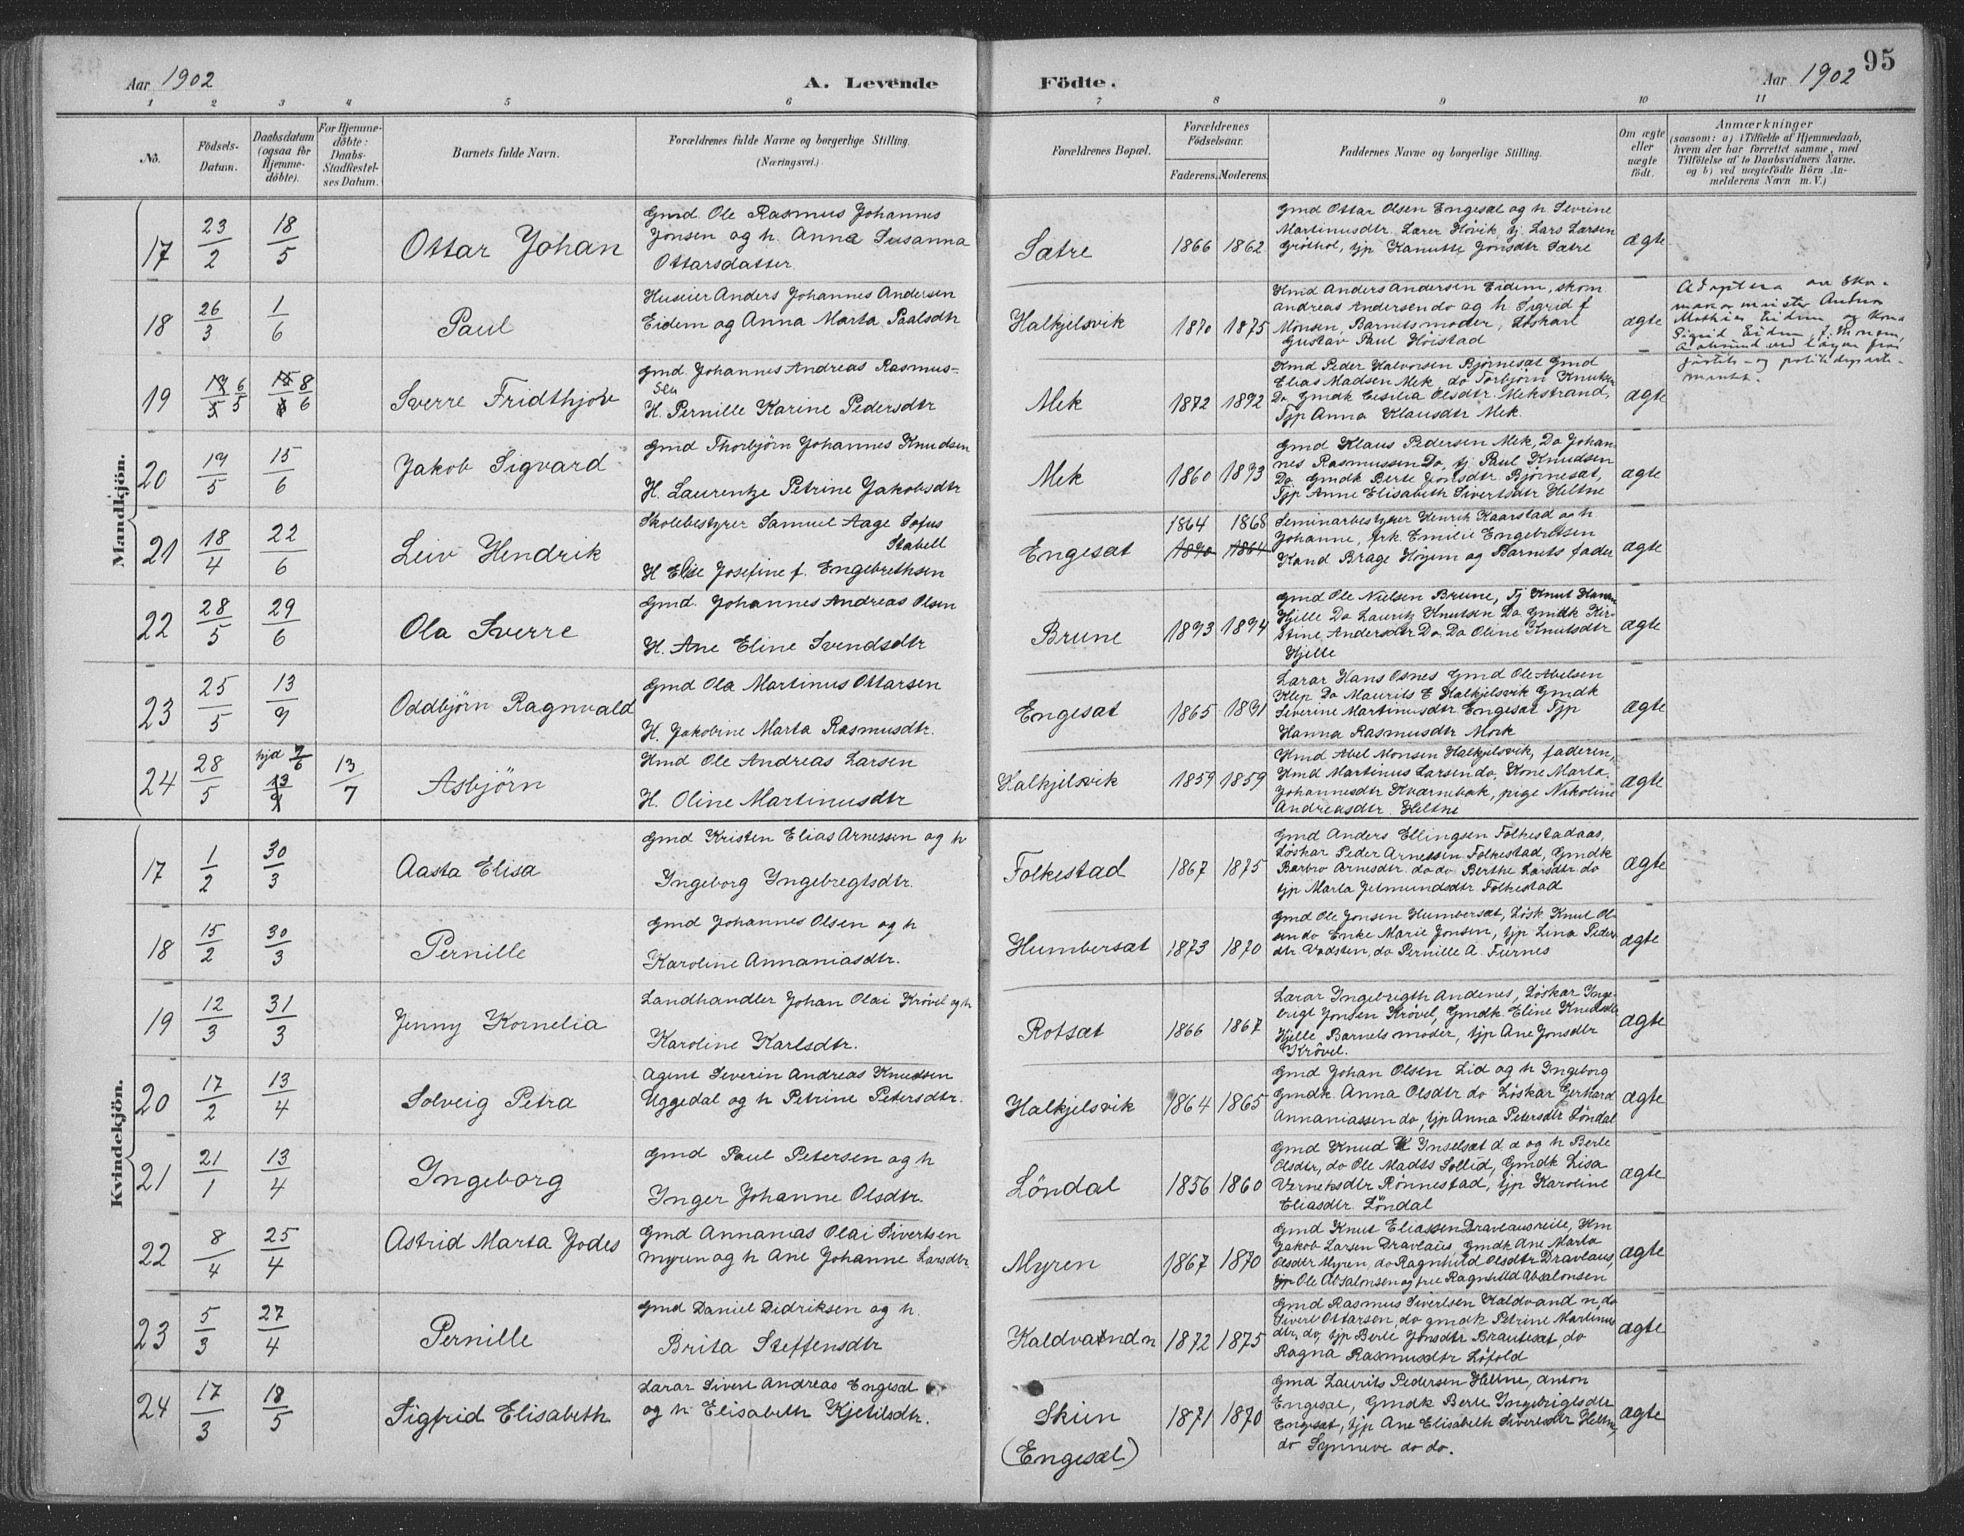 95
Aar 1902 A. Levende Födte. Aar 1902
1 2 3 4 5 6 7 8 9 10 11
No.
Födsels-Datum.
Daabsdatum (ogsaa för Hjemme-döbte).
For Hjemme-döbte: Daabs-Stadfæstelses Datum.
Barnets fulde Navn.
Forældrenes fulde Navne og borgerlige Stilling. (Næringsvei.)
Forældrenes Bopæl.
Forældrenes Födselsaar.
Faderens. Moderens.
Faddernes Navne og borgerlige Stilling.
Om ægte eller uægte födt.
Anmærkninger
(saasom: a) i Tilfælde af Hjemmedaab, hvem der har forrettet samme, med Tilföielse af to Daabsvidners Navne, og b) ved uægtefödte Börn Anmelderens Navn m. V.)
Mandkjön.
17 23/2 18/5 Ottar Johan
Gmd Ole Rasmus Johannes
Jonsen og h. Anna Susanna
Ottarsdatter.
Sætre 1866 1862
Gmd Ottar Olsen Engesæt og h Severine
Martinusdtr. Lærer Høvik, tj. Lars Larsen
Grøthol, tjp Kanutte Jonsdtr Sætre
ægte
18 26/3 1/6 Paul
Huseier Anders Johannes Andersen
Eidem og Anna Marta Paalsdtr
Halkjelsvik 1870 1875
Kmd Anders Andersen Eidem, skom
Andreas Andersen do og h Sigrid f
Monsen, Barnets moder, Løskarl
Gustav Paul Høistad
ægte
19 6/5 8/6 Sverre Fridthjov
Gmd Johannes Andreas Rasmus-
sen
H. Pernille Karine Pedersdtr
Mek 1872 1892
Kmd Peder Halvorsen Bjørnesæt Gmd
Elias Madsen Mek do Torbjørn Knutsen
Do Gmdk Cesilia Olsdtr Mekstrand,
Tjp Anna Klausdtr Mek.
ægte
20 17/5 15/6 Jakob Sigvard
Gmd Thorbjörn Johannes Knudsen
H. Laurentze Petrine Jakobsdtr
Mek 1860 1893
Gmd Klaus Pedersen Mek, Do Johan-
nes Rasmussen Do, tj Paul Knudsen
Do Gmdk Berte Jonsdtr. Bjørnesæt,
Tjp Anne Elisabeth Sivertsdtr Heltne
ægte
21 18/4 22/6 Leiv Hendrik
Skolebestyrer Samuel Aage Sofus
Stabell
H Elise Josefine f. Engebrethsen
Engesæt 1864 1868
1870 1864
Seminarbestyrer Henrik Kaarstad og h
Johanne, frk. Emilie Engebretsen
Kand Brage Høyem og Barnets fader
ægte
22 28/5 29/6 Ola Sverre
Gmd. Johannes Andreas Olsen
H. Ane Eline Svendsdtr
Brune 1893 1894
Gmd Ole Nielsen Brune, Tj Knut Hansen
Hjelle Do Lauritz Knutsen Do Gmdk Kir-
stine Andersdtr Do, Do Oline Knutsdtr
Hjelle
ægte
23 25/5 13/7 Oddbjörn Ragnvald
Gmd Ola Martinus Ottarsen
H. Jakobine Marta Rasmusdtr.
Engesæt 1865 1891
Lærar Hans Osnes Gmd Ole Abelsen
Klep Do Maurits E Halkjelsvik Gmdk
Severine Martinusdtr Engesæt Tjp
Hanna Rasmusdtr Mork
ægte
24 28/5 hjd 7/6 13/7 Asbjörn
Kmd Ole Andreas Larsen
H. Oline Martinusdtr
Halkjelsvik 1859 1859
Kmd Abel Monsen Halkjelsvik, faderen,
Kmd Martinus Larsen do, Kone Marta
Johannesdtr Kværnebak, pige Nikoline
Andreasdtr Heltne
ægte
Kvindekjön.
17 1/2 30/3 Aasta Elisa
Gmd Kristen Elias Arnessen og h
Ingeborg Ingebregtsdtr.
Folkestad 1867 1875
Gmd Anders Ellingsen Folkestadaas,
Løskar Peder Arnessen Folkestad, Gmdk
Barbro Arnesdtr. do do Berthe Larsdtr do
tjp Marta Jetmundsdtr Folkestad
ægte
18 15/2 30/3 Pernille
Gmd Johannes Olsen og h
Karoline Annaniasdtr.
Humbersæt 1873 1870
Gmd Ole Jonsen Humbersæt, Løsk Knut Ol-
sen do Enke Marie Jonsen, tjp Lina Peder
dtr. Vadsten, do Pernille A. Furnes
ægte
19 12/3 31/3 Jenny Kornelia
Landhandler Johan Olai Krövel og h
Karoline Karlsdtr.
Rotsæt 1866 1867
Lærar Ingebrigth Andenes, Løskar Inge-
brigt Jonsen Krövel, Gmdk Eline Knudsdtr
Hjelle, Barnets moder, tjp Ane Jonsdtr
Krövel.
ægte
20 17/2 13/4 Solveig Petra
Agent Severin Andreas Knudsen
Uggedal og h Petrine Petersdtr.
Halkjelsvik 1864 1865
Gmd Johan Olsen Lid og h Ingeborg
Gmdk Anna Olsdtr do Løskar Gerhard
Annaniassen do, tjp Anna Petersdtr Löndal
ægte
21 21/1 13/4 Ingeborg
Gmd Paul Petersen og h
Inger Johanne Olsdtr.
Löndal 1856 1860
Gmd Knud K Inselsæt d æ og h Berte
Olsdtr, do Ole Madts Sollid, Gmdk Lisa
Verneksdtr Rönnestad, tjp Karoline
Eliasdtr Löndal
ægte
22 8/4 25/4 Astrid Marta Jodes
Gmd Annanias Olai Sivertsen
Myren og h Ane Johanne Larsdtr
Myren 1867 1870
Gmd Knut Eliassen Dravlausreite, Km
Jakob Larsen Dravlaus, Gmdk Ane Marta
Olsdtr Myren, do Ragnhild Olsdtr Dravlaus,
tjp Ole Absalonsen og frue Ragnhild Absalonsen
ægte
23 5/3 27/4 Pernille
Gmd Daniel Didriksen og h.
Brita Steffensdtr
Kaldvatnd n 1872 1875
Gmd Rasmus Sivertsen Kaldvand n, do
Sivert Ottarsen, do gmdk Petrine Martinus
dtr, do, tjp Berte Jonsdtr Brautesæt, do
Ragna Rasmusdtr Löfold
ægte
24 17/3 18/5 Sigfrid Elisabeth
Lærar Sivert Andreas Engesæt
og h Elisabeth Kjetilsdtr.
Skien
(Engesæt) 1871 1870
Gmd Laurits Pedersen Heltne, Anton
Engesæt, Gmdk Berte Ingebrigtsdtr
Engesæt, tjp Ane Elisabeth Sivertsdtr Heltne,
do Synneve do do.
ægte